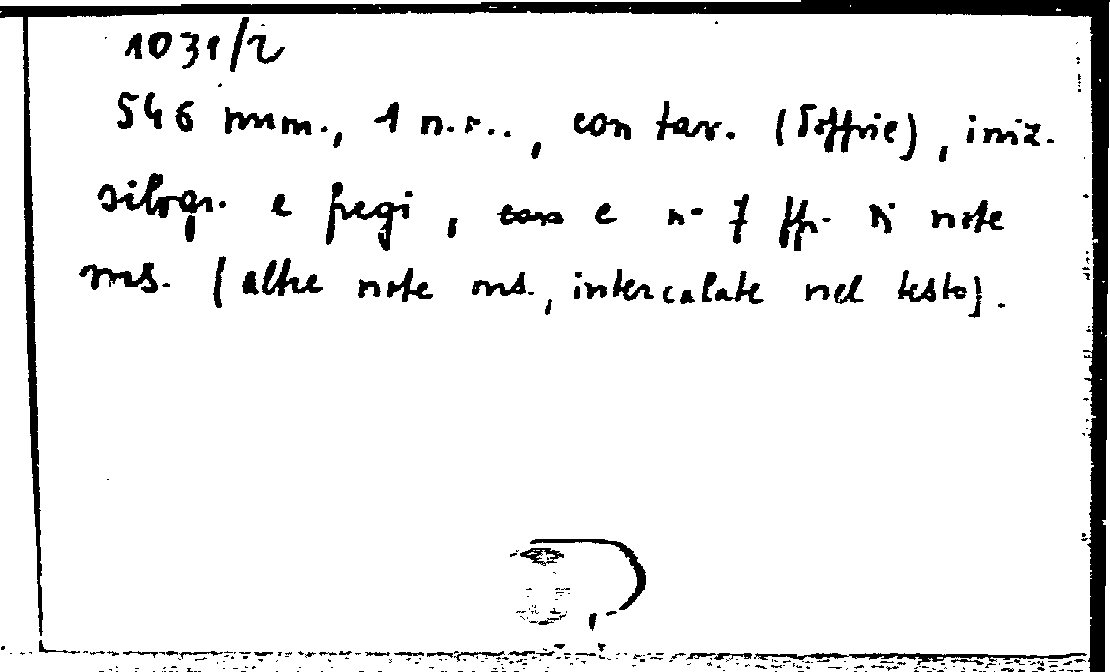 1031/2
546 num., 1 n.n., con tav. (Soffrie), iniz.
silogr. e fregi, e n° 7 ff. di note
ms. (altre note ms., intercalate nel testo).